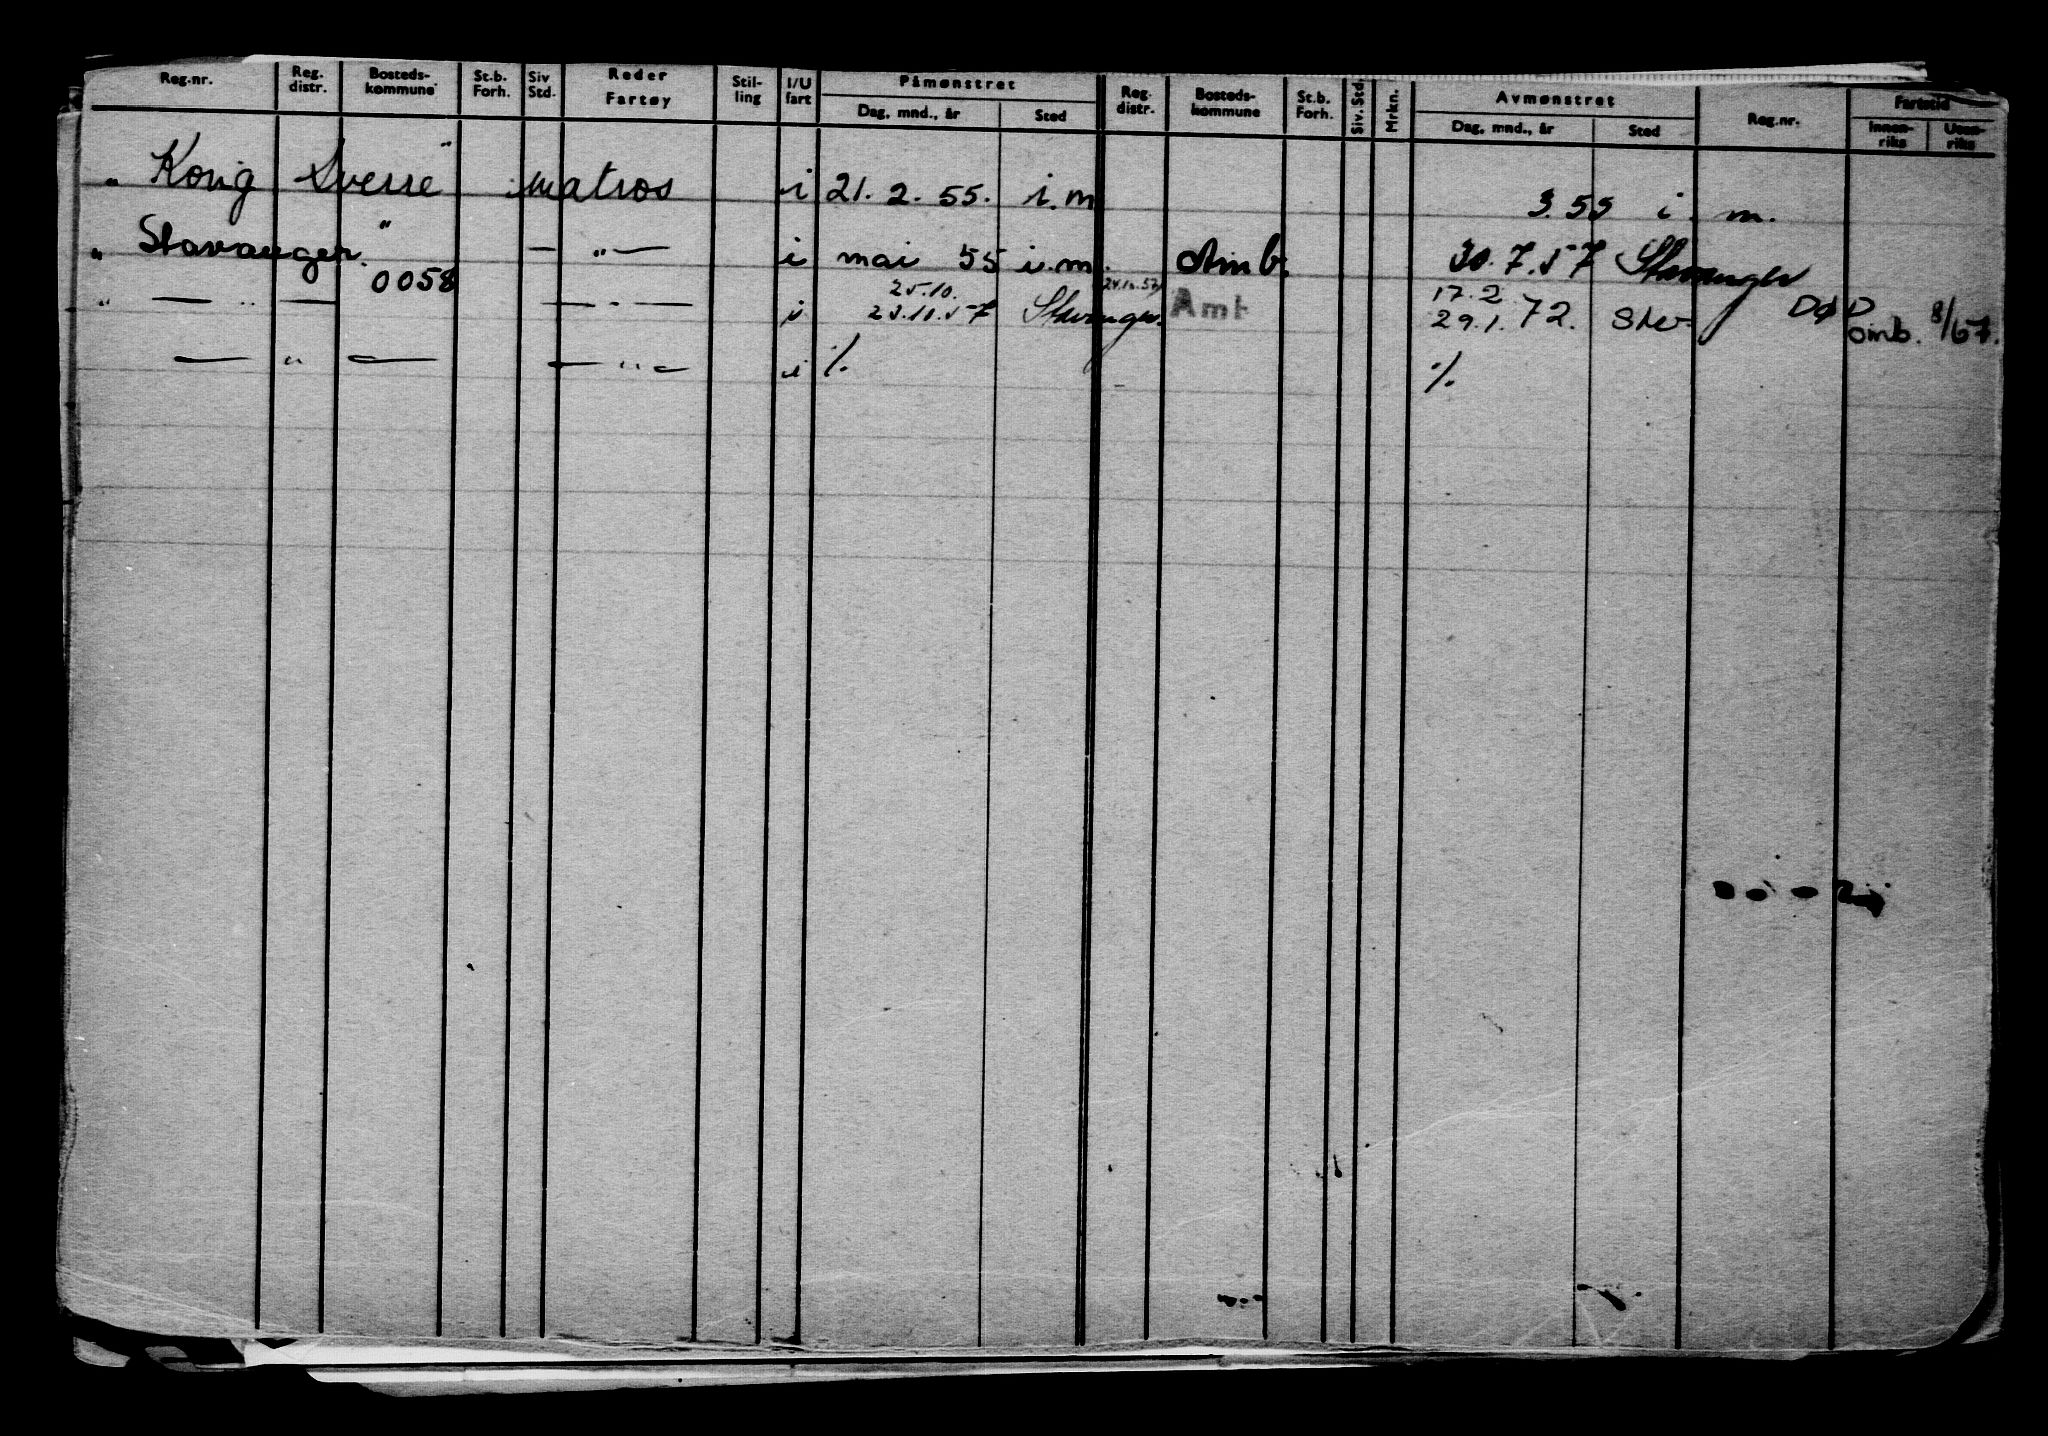 Reg.nr. Reg. distr. Bosteds- kommune St.b. Forh. Siv Std. Reder Fartøy Stil- ling I/U fart Påmønstret Dag, mnd., år Sted Reg. distr. Bosteds- kommune St.b. Forh. Siv. Std. Mrkn. Avmønstret Dag, mnd., år Sted Reg.nr. Fartstid Innen- riks Uten- riks
" Kong Sverre" matros i 21. 2. 55. i. m 3. 55 i. m.
" Stavanger" — " — i mai 55 i. m. Omb. 30. 7. 57 Stavanger
0058 25.10. 17. 2.
" — " — — " — i 23.10.57 Stavanger. Amt 29. 1. 72. Stv. DØD omb. 8/67.
— " — — " — i ⁒ ⁒